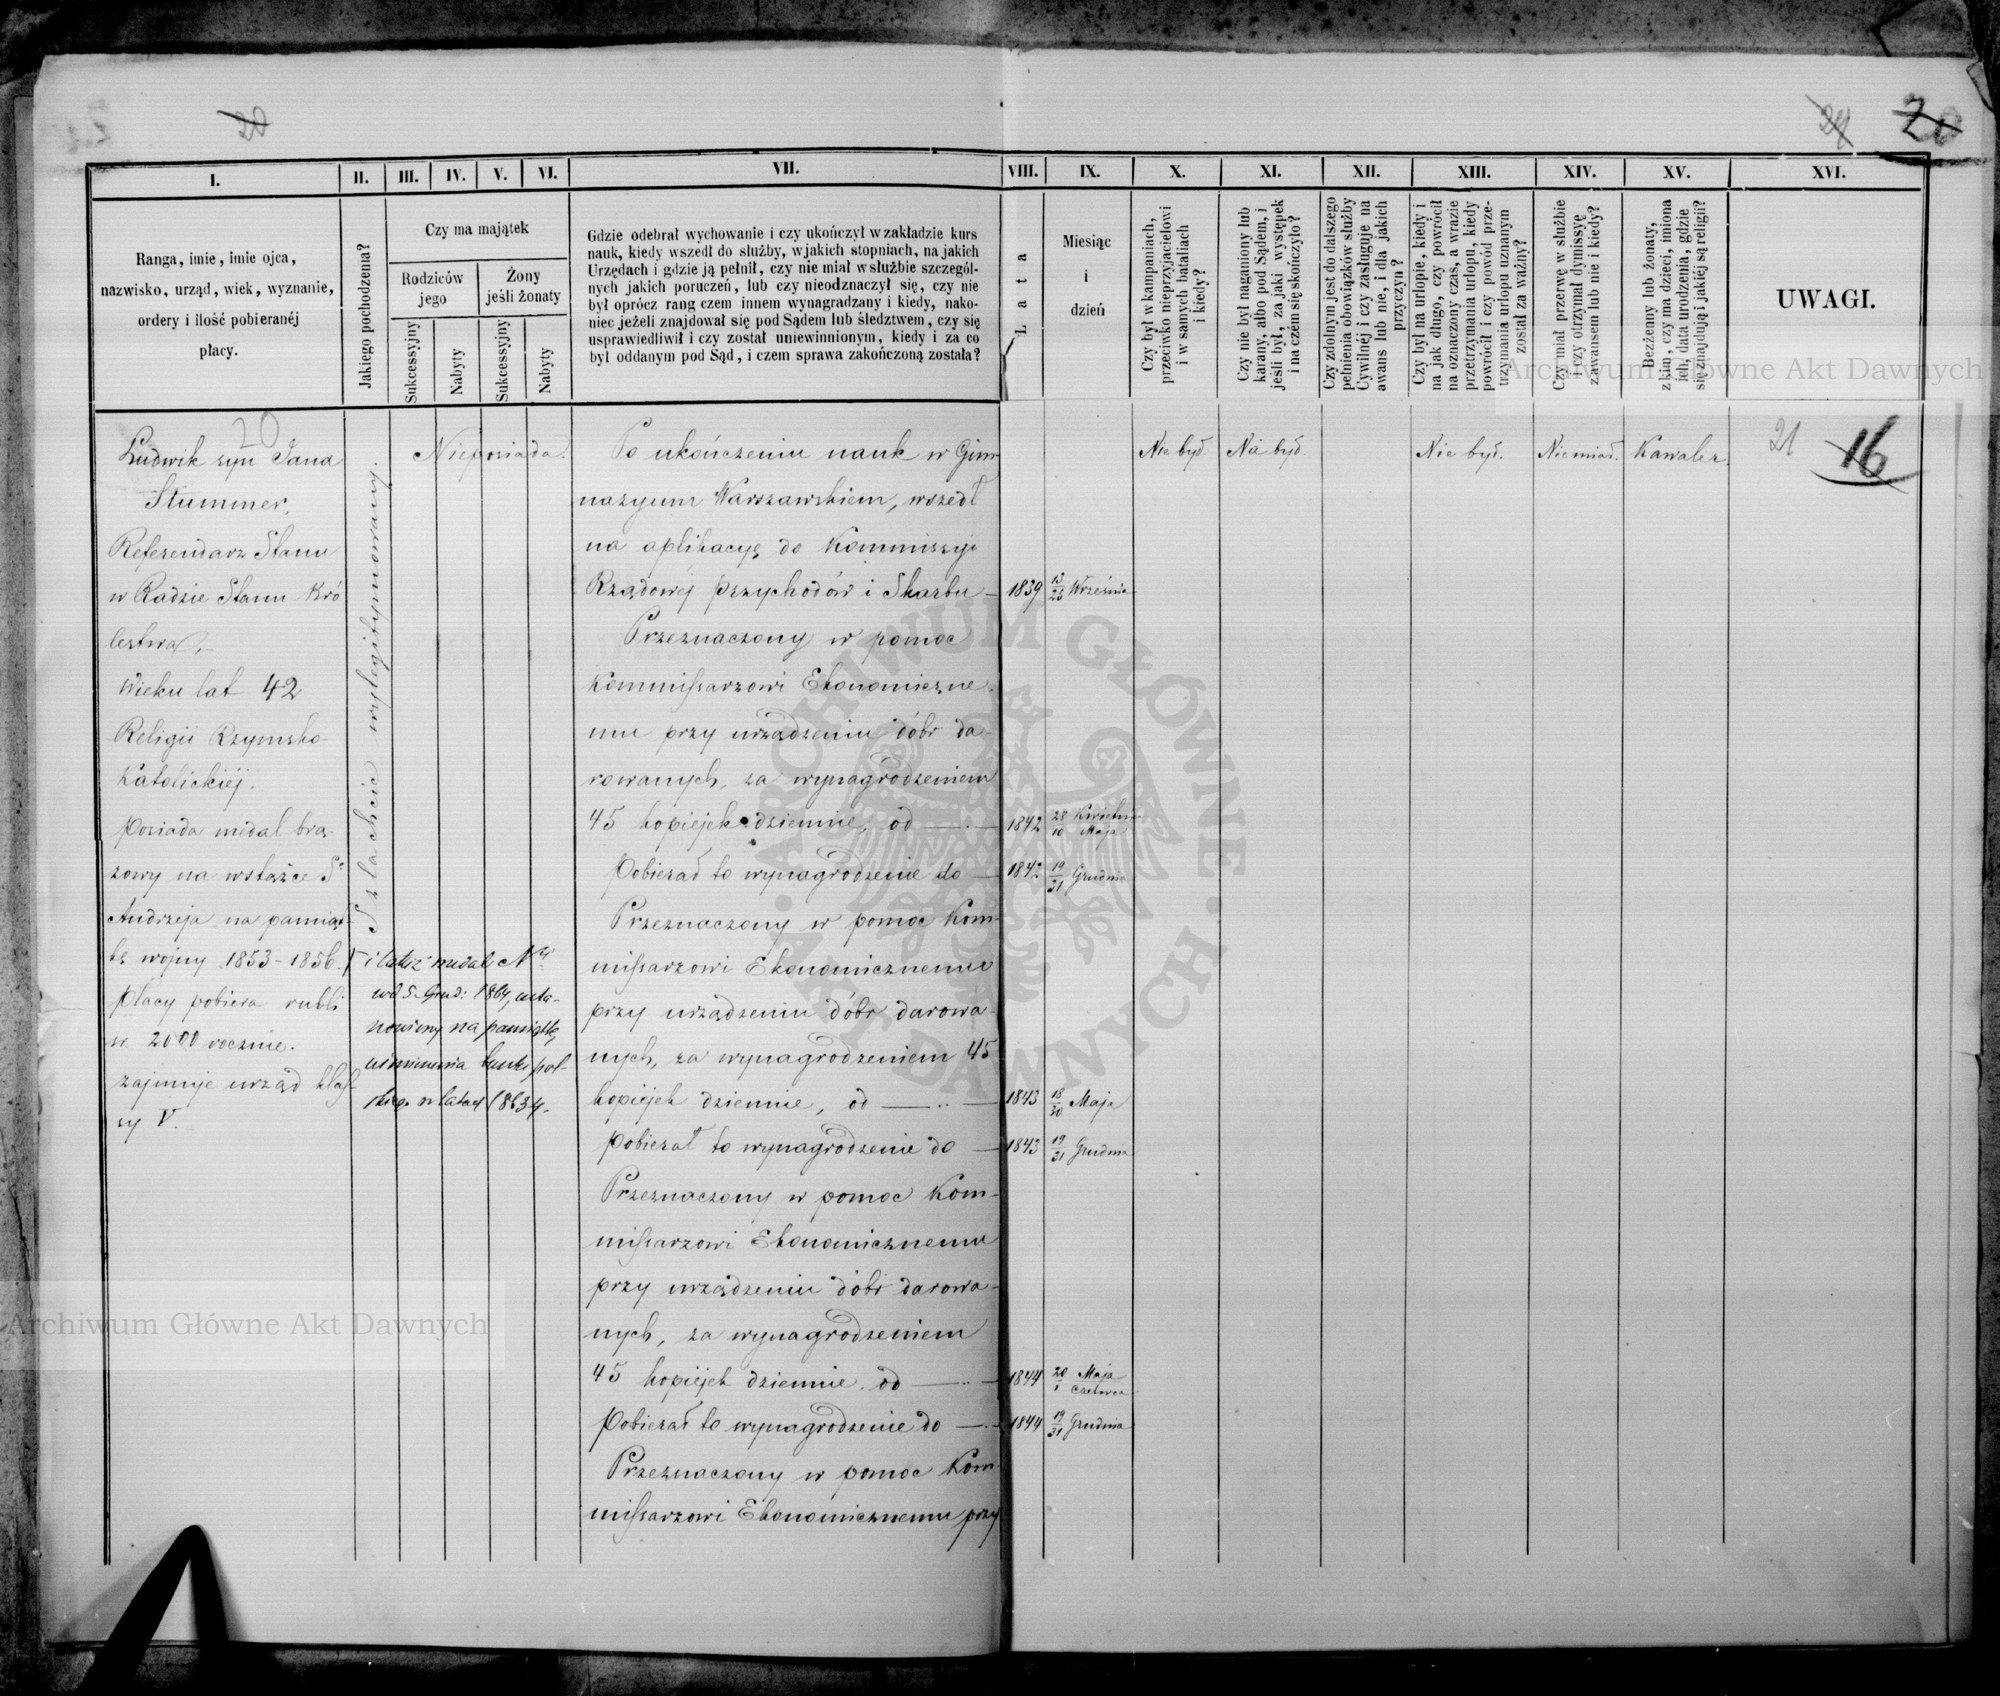 20
24
20
I.
II.
III.
IV.
V.
VI.
VII.
VIII.
IX.
X.
XI.
XII.
XIII.
XIV.
XV.
XVI.
Ranga, imie, imie ojca,
nazwisko, urząd, wiek, wyznanie,
ordery i ilość pobieranéj
płacy.
Jakiego pochodzenia?
Czy ma majątek
Rodziców
jego
Żony
jeśli żonaty
Sukcessyjny
Nabyty
Sukcessyjny
Nabyty
Gdzie odebrał wychowanie i czy ukończył w zakładzie kurs
nauk, kiedy wszedł do służby, w jakich stopniach, na jakich
Urzędach i gdzie ją pełnił, czy nie miał w służbie szczegól-
nych jakich poruczeń, lub czy nieodznaczył się, czy nie
był oprócz rang czem innem wynagradzany i kiedy, nako-
niec jeżeli znajdował się pod Sądem lub śledztwem, czy się
usprawiedliwił i czy został uniewinnionym, kiedy i za co
był oddanym pod Sąd, i czem sprawa zakończoną została?
Lata
Miesiąc
i
dzień
Czy był w kampaniach,
przeciwko nieprzyjacielowi
i w samych bataliach
i kiedy?
Czy nie był naganiony lub
karany, albo pod Sądem, i
jeśli był, za jaki występek
i na czém się skończyło?
Czy zdolnym jest do dalszego
pełnienia obowiązków służby
Cywilnéj i czy zasługuje na
awans lub nie, i dla jakich
przyczyn?
Czy był na urlopie, kiedy i
na jak długo, czy powrócił
na oznaczony czas, a w razie
przetrzymania urlopu, kiedy
powrócił i czy powód prze-
trzymania urlopu uznanym
został za ważny?
Czy miał przerwę w służbie
czy otrzymał dymissyę
z awansem lub nie i kiedy?
Bezżenny lub żonaty,
z kim, czy ma dzieci, imiona
ich, data urodzenia, gdzie
się znajdują i jakiéj są religii?
UWAGI.
20
Ludwik syn Jana
Stummer.
Referendarz Stanu
w Radzie Stanu Kró
lestwa.
Wieku lat 42
Religii Rzymsko-
Katolickiéj.
Posiada medal brą-
zowy na wstążce Sº
Andrzeja na pamiąt-
kę wojny 1853-1856.
Płacy pobiera rubli
sr. 2000 rocznie.
zajmuje urząd klas-
sy V.
Szlachcic wylegitymowany.
i takiż medal
od 5. Grud: 1864, usta-
nowiony na pamiątkę
uśmierzenia buntu pol-
skiego w latach 1863/4.
Nieposiada.
Po ukończeniu nauk w Gim
nazyum Warszawskiem, wszedł
na aplikacyę do Kommissyi
Rządowéj Przychodów i Skarbu — 1839 13/25 Września
Przeznaczony w pomoc
Kommissarzowi Ekonomiczne-
mu przy urządzeniu dóbr da-
rowanych, za wynagrodzeniem
45 kopiejek dziennie, od — 1842 28 Kwietnia/10 Maja
Pobierał to wynagrodzenie do — 1842 19/31 Grudnia
Przeznaczony w pomoc Kom-
missarzowi Ekonomicznemu
przy urządzeniu dóbr darowa-
nych, za wynagrodzeniem 45
kopiejek dziennie, od — 1843 18/30 Maja
Pobierał to wynagrodzenie do — 1843 19/31 Grudnia
Przeznaczony w pomoc Kom-
missarzowi Ekonomicznemu
przy urządzeniu dóbr darowa-
nych, za wynagrodzeniem
45 kopiejek dziennie, od — 1844 20 Maja/1 Czerwca
Pobierał to wynagrodzenie do — 1844 19/31 Grudnia
Przeznaczony w pomoc Kom-
missarzowi Ekonomicznemu przy
Nie był
Nie był.
Nie był.
Nie miał.
Kawaler.
21
16
Archiwum Główne Akt Dawnych
Archiwum Główne Akt Dawnych
ARCHIWUM GŁÓWNE · AKT DAWNYCH ·